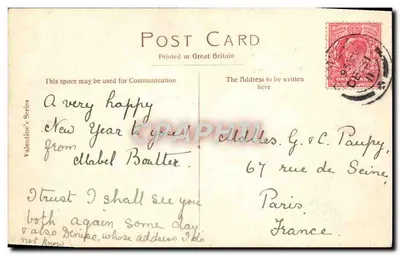 POST CARD
Printed in Great Britain
This space may be used for Communication
The Address to be written
here
Valentine's Series
A very happy
New Year to you
from
Mabel Boulter
I trust I shall see you
both again some day
& also Denise, whose address I do
not know.
Mdlles. G. & C. Paupy,
67 rue de Seine,
Paris,
France.